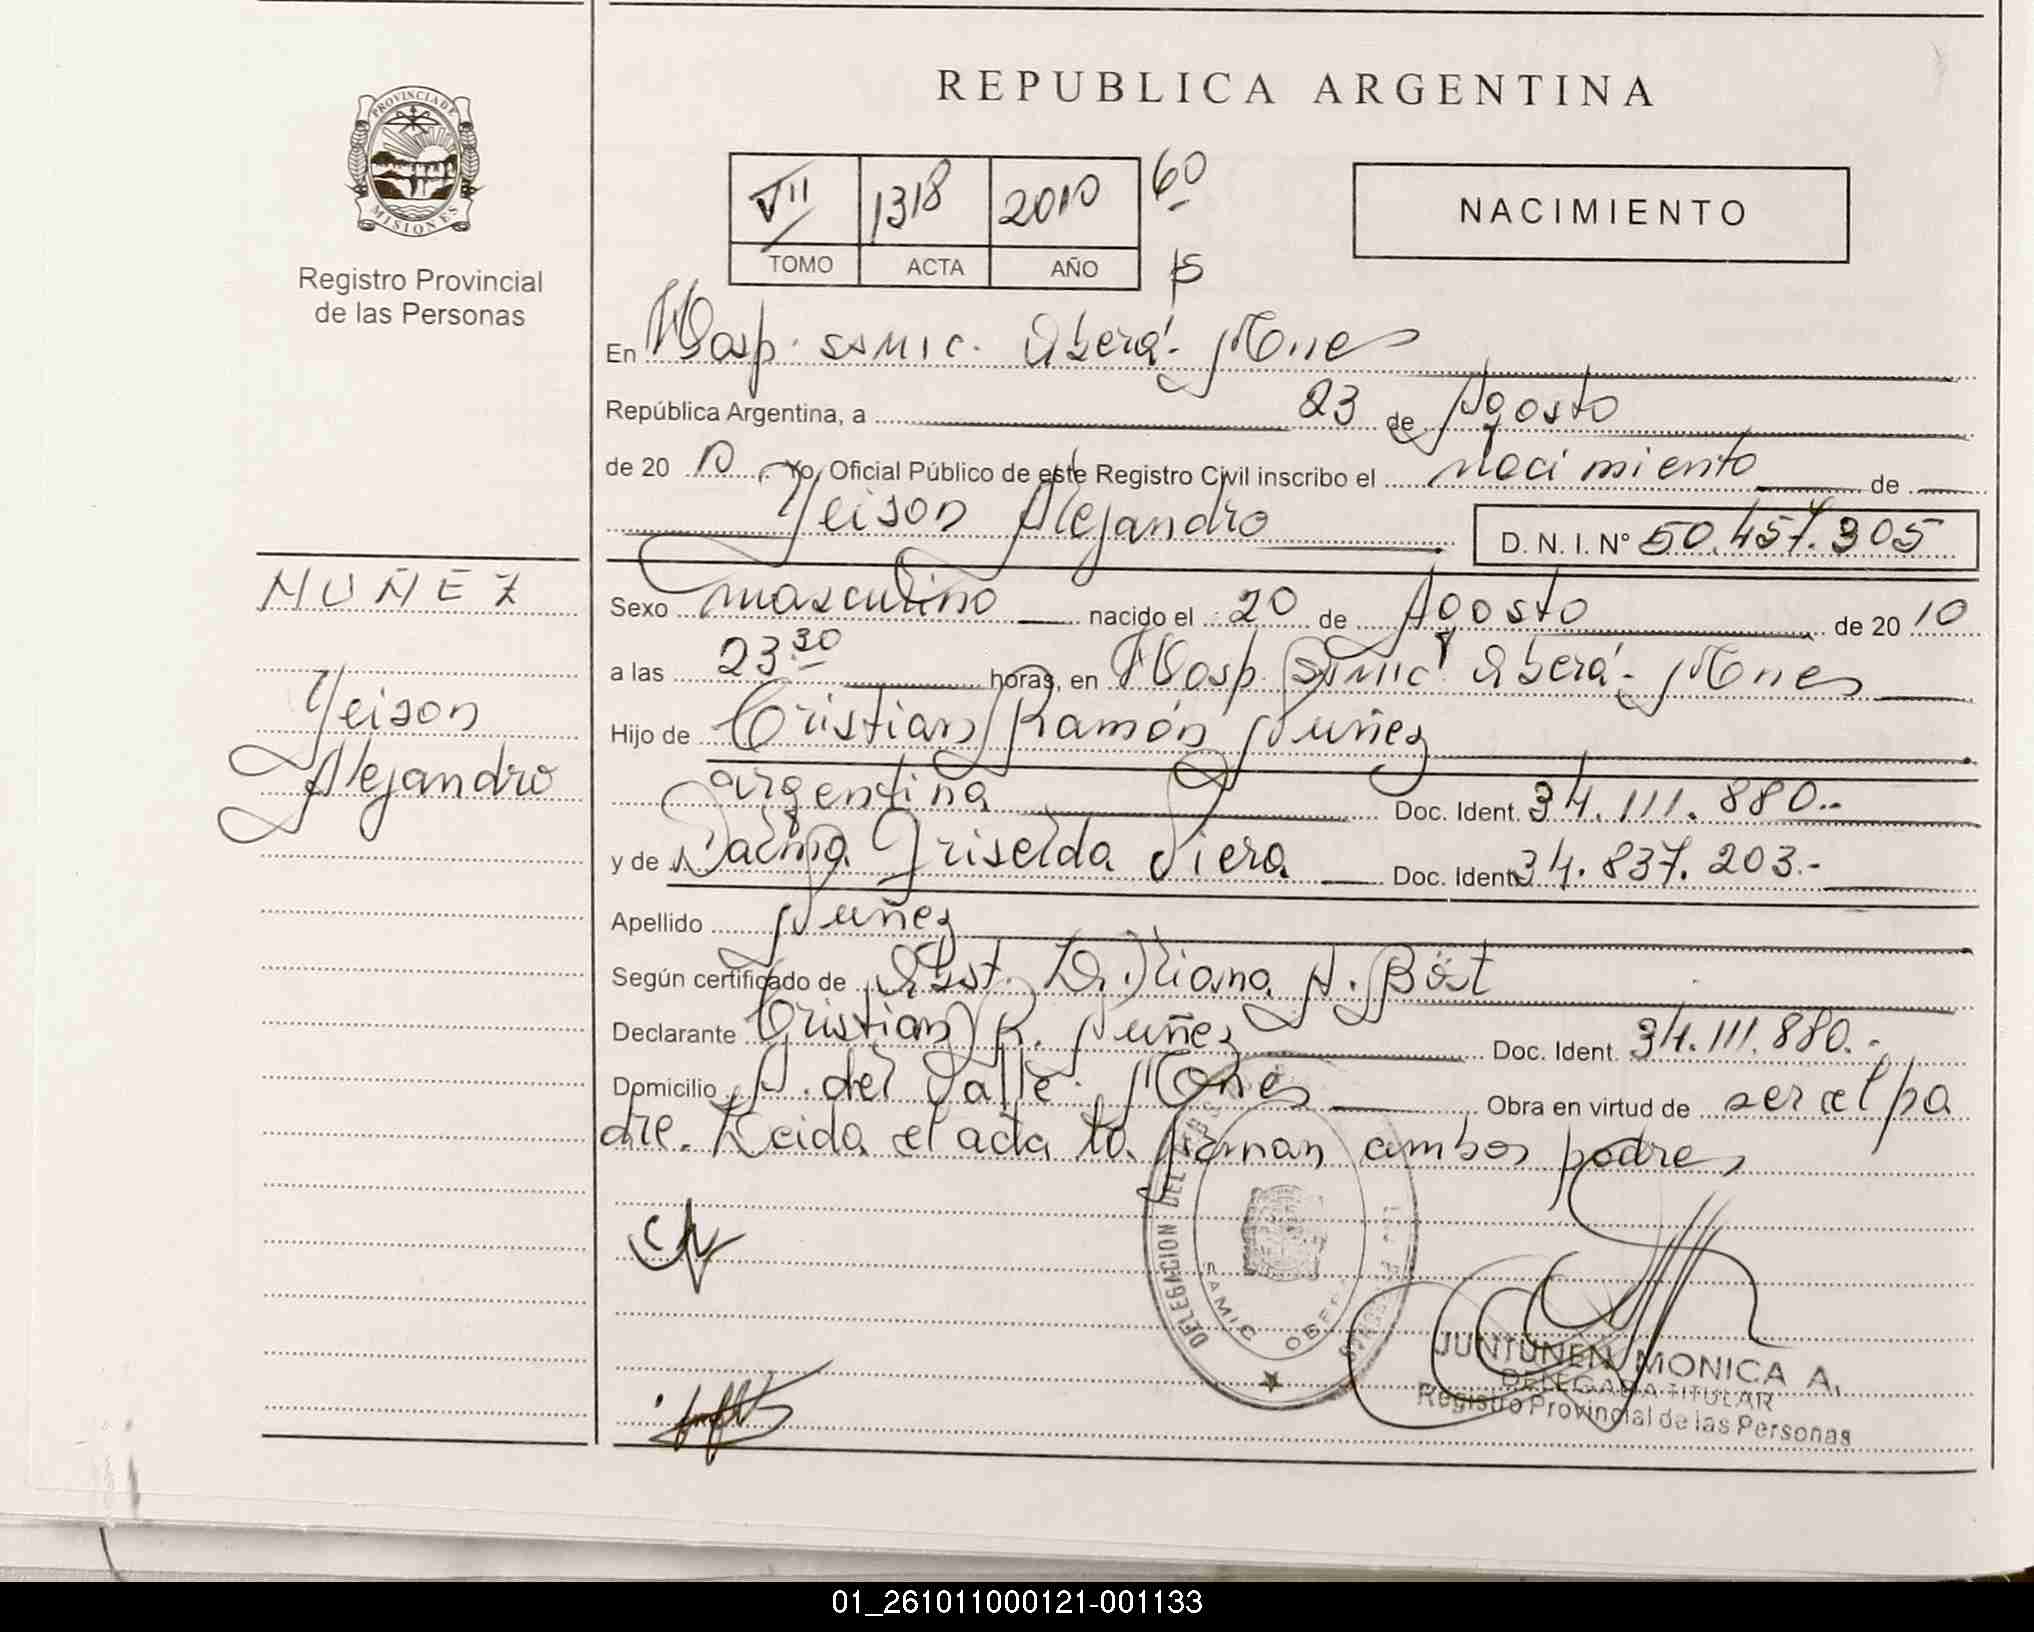 REPUBLICA ARGENTINA
PROVINCIA DE
MISIONES
Registro Provincial
de las Personas
VII 1318 2010 60
TOMO ACTA AÑO 15
NACIMIENTO
En Hosp. SAMIC. Oberá - Mnes
República Argentina, a 23 de Agosto
de 20 10 Yo, Oficial Público de este Registro Civil inscribo el nacimiento de
Yeison Alejandro D. N. I. N° 50.457.305
NUÑEZ
Yeison
Alejandro
Sexo masculino nacido el 20 de Agosto de 20 10
a las 23 30 horas, en Hosp. SAMIC Oberá - Mnes
Hijo de Cristian Ramón Nuñez
argentina Doc. Ident. 34.111.880.-
y de Griselda Viera Doc. Ident. 34.837.203.-
Apellido Nuñez
Según certificado de Obst. Liliana A. Böst
Declarante Cristian R. Nuñez Doc. Ident. 34.111.880.-
Domicilio A. del Valle. Mones Obra en virtud de ser el pa
dre. Leida el acta la firman ambos padres
DELEGACION DEL
SAMIC OBERA
JUNTUNEN MONICA A.
DELEGADA TITULAR
Registro Provincial de las Personas
01_261011000121-001133